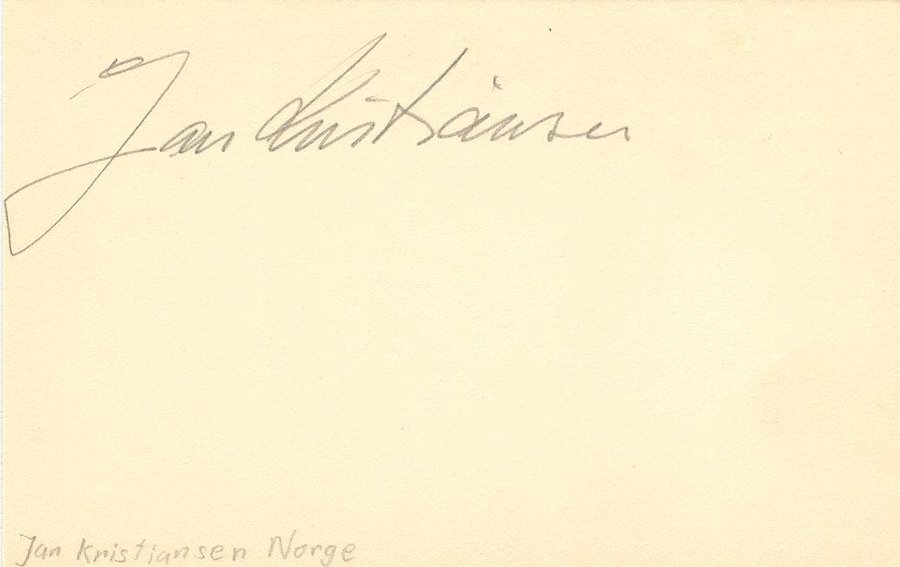 Jan Kristiansen
Jan Kristiansen Norge